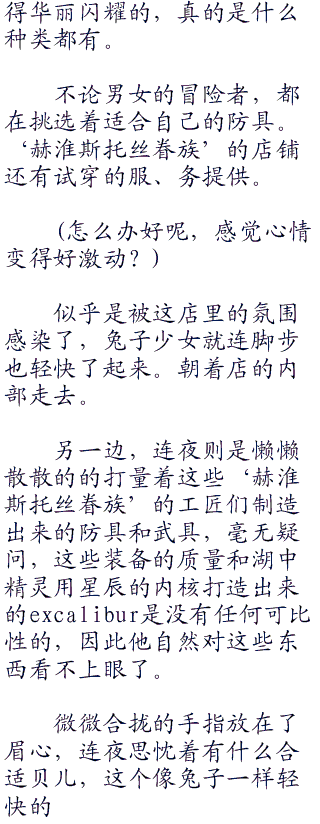 得华丽闪耀的，真的是什么
种类都有。
不论男女的冒险者，都
在挑选着适合自己的防具。
‘赫淮斯托丝眷族’的店铺
还有试穿的服、务提供。
(怎么办好呢，感觉心情
变得好激动？)
似乎是被这店里的氛围
感染了，兔子少女就连脚步
也轻快了起来。朝着店的内
部走去。
另一边，连夜则是懒懒
散散的的打量着这些‘赫淮
斯托丝眷族’的工匠们制造
出来的防具和武具，毫无疑
问，这些装备的质量和湖中
精灵用星辰的内核打造出来
的excalibur是没有任何可比
性的，因此他自然对这些东
西看不上眼了。
微微合拢的手指放在了
眉心，连夜思忱着有什么合
适贝儿，这个像兔子一样轻
快的